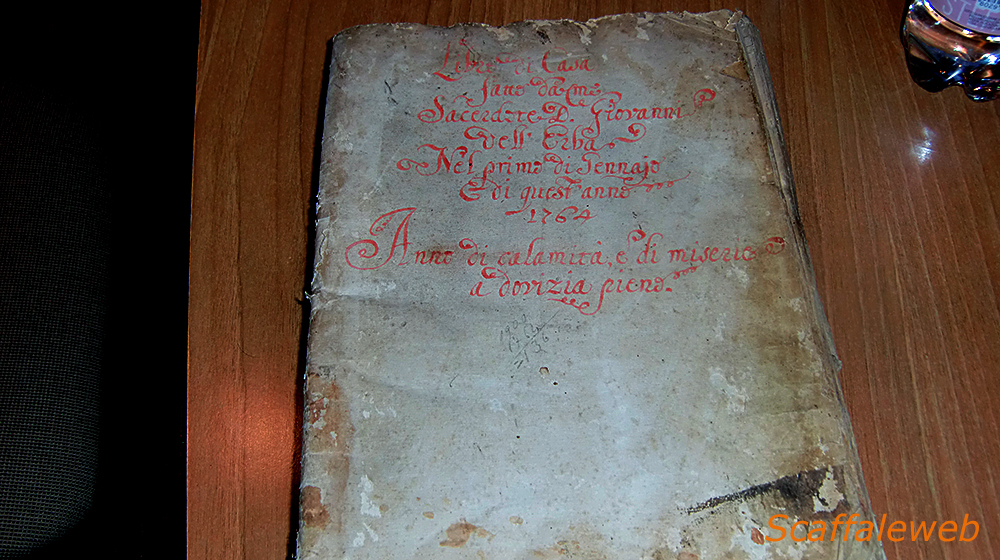 Libro di Casa
fatto da me
Sacerdote D. Giovanni
dell' Erba
Nel primo di Gennajo
E di quest' anno
1764
Anno di calamità, e di miserie
a dovizia pieno.
1904
1764
136
Scaffaleweb